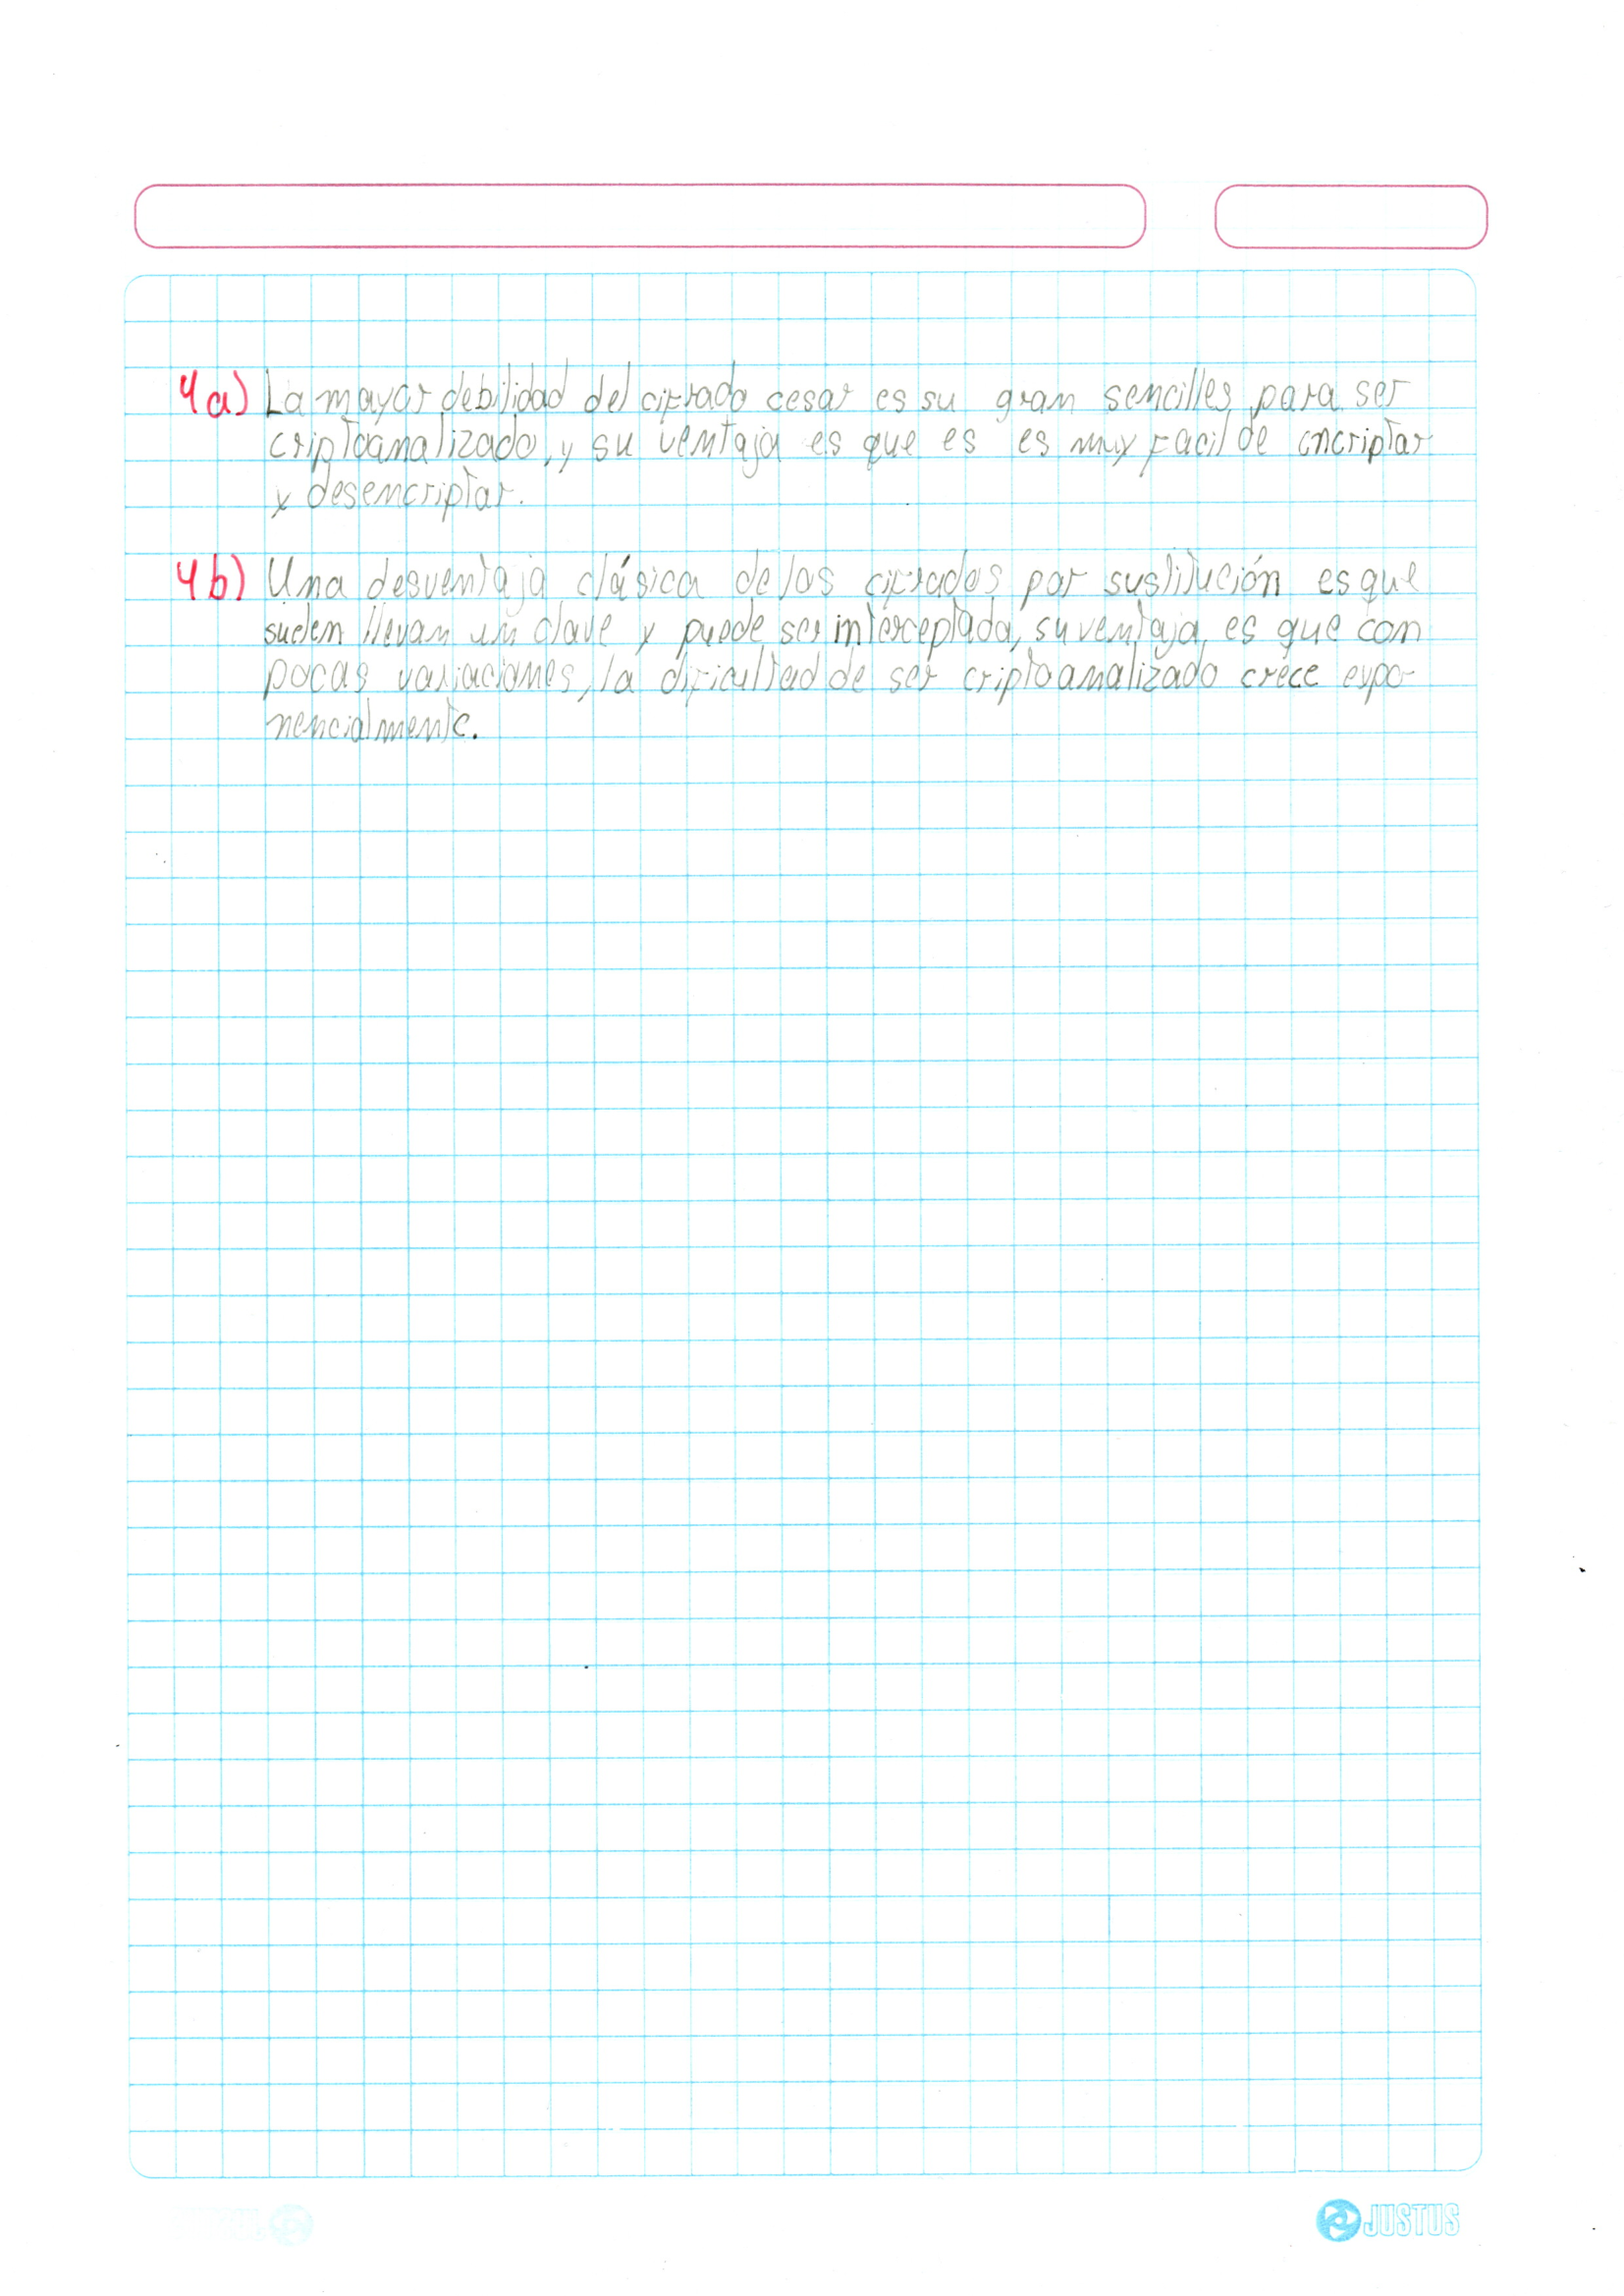 4a) La mayor debilidad del cifrado cesar es su gran sencilles para ser
criptoanalizado, y su ventaja es que es es muy facil de encriptar
y desencriptar.
4b) Una desventaja clásica de los cifrados por sustitución es que
suelen llevan un clave y puede ser interceptada, su ventaja es que con
pocas variaciones, la dificultad de ser criptoanalizado crece expo-
nencialmente.
JUSTUS